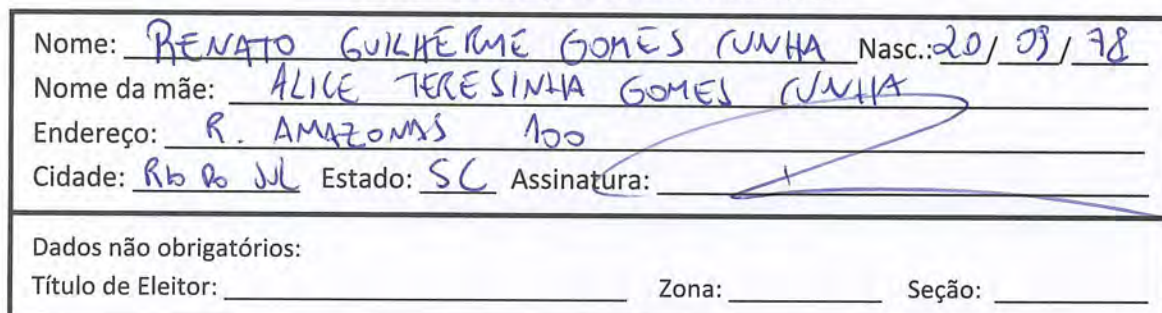 Nome: RENATO GUILHERME GOMES CUNHA Nasc.: 20/09/78
Nome da mãe: ALICE TERESINHA GOMES CUNHA
Endereço: R. AMAZONAS 100
Cidade: Rio do Sul Estado: SC Assinatura:
Dados não obrigatórios:
Título de Eleitor: Zona: Seção: